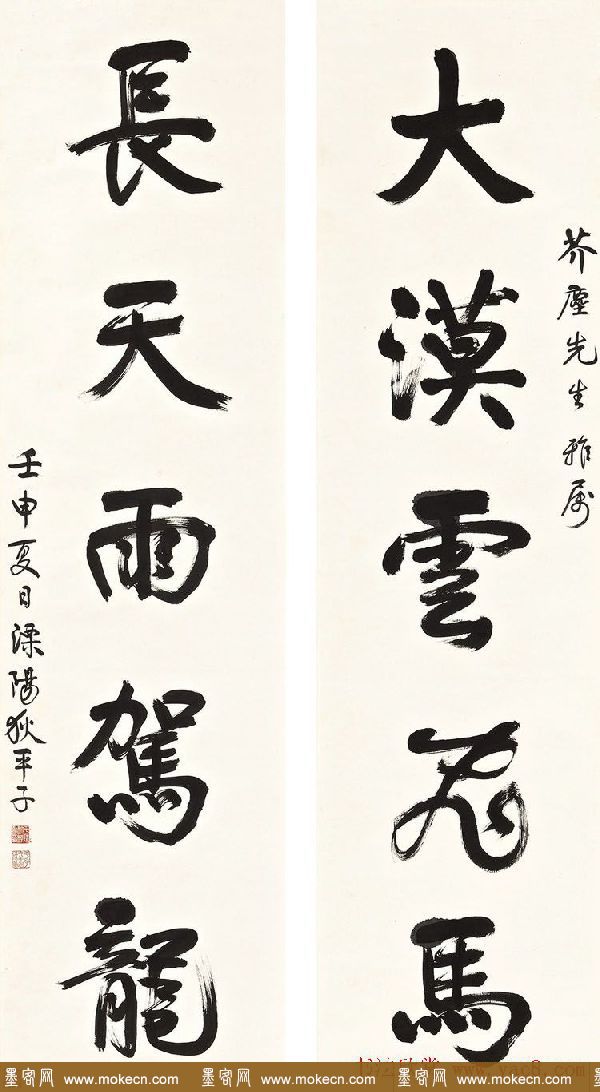 芥塵先生雅属
大漠雲飛馬
長天雨駕龍
壬申夏日溧陽狄平子
www.yac8.com
墨客网 www.mokecn.com 墨客网 www.mokecn.com 墨客网 www.mokecn.com